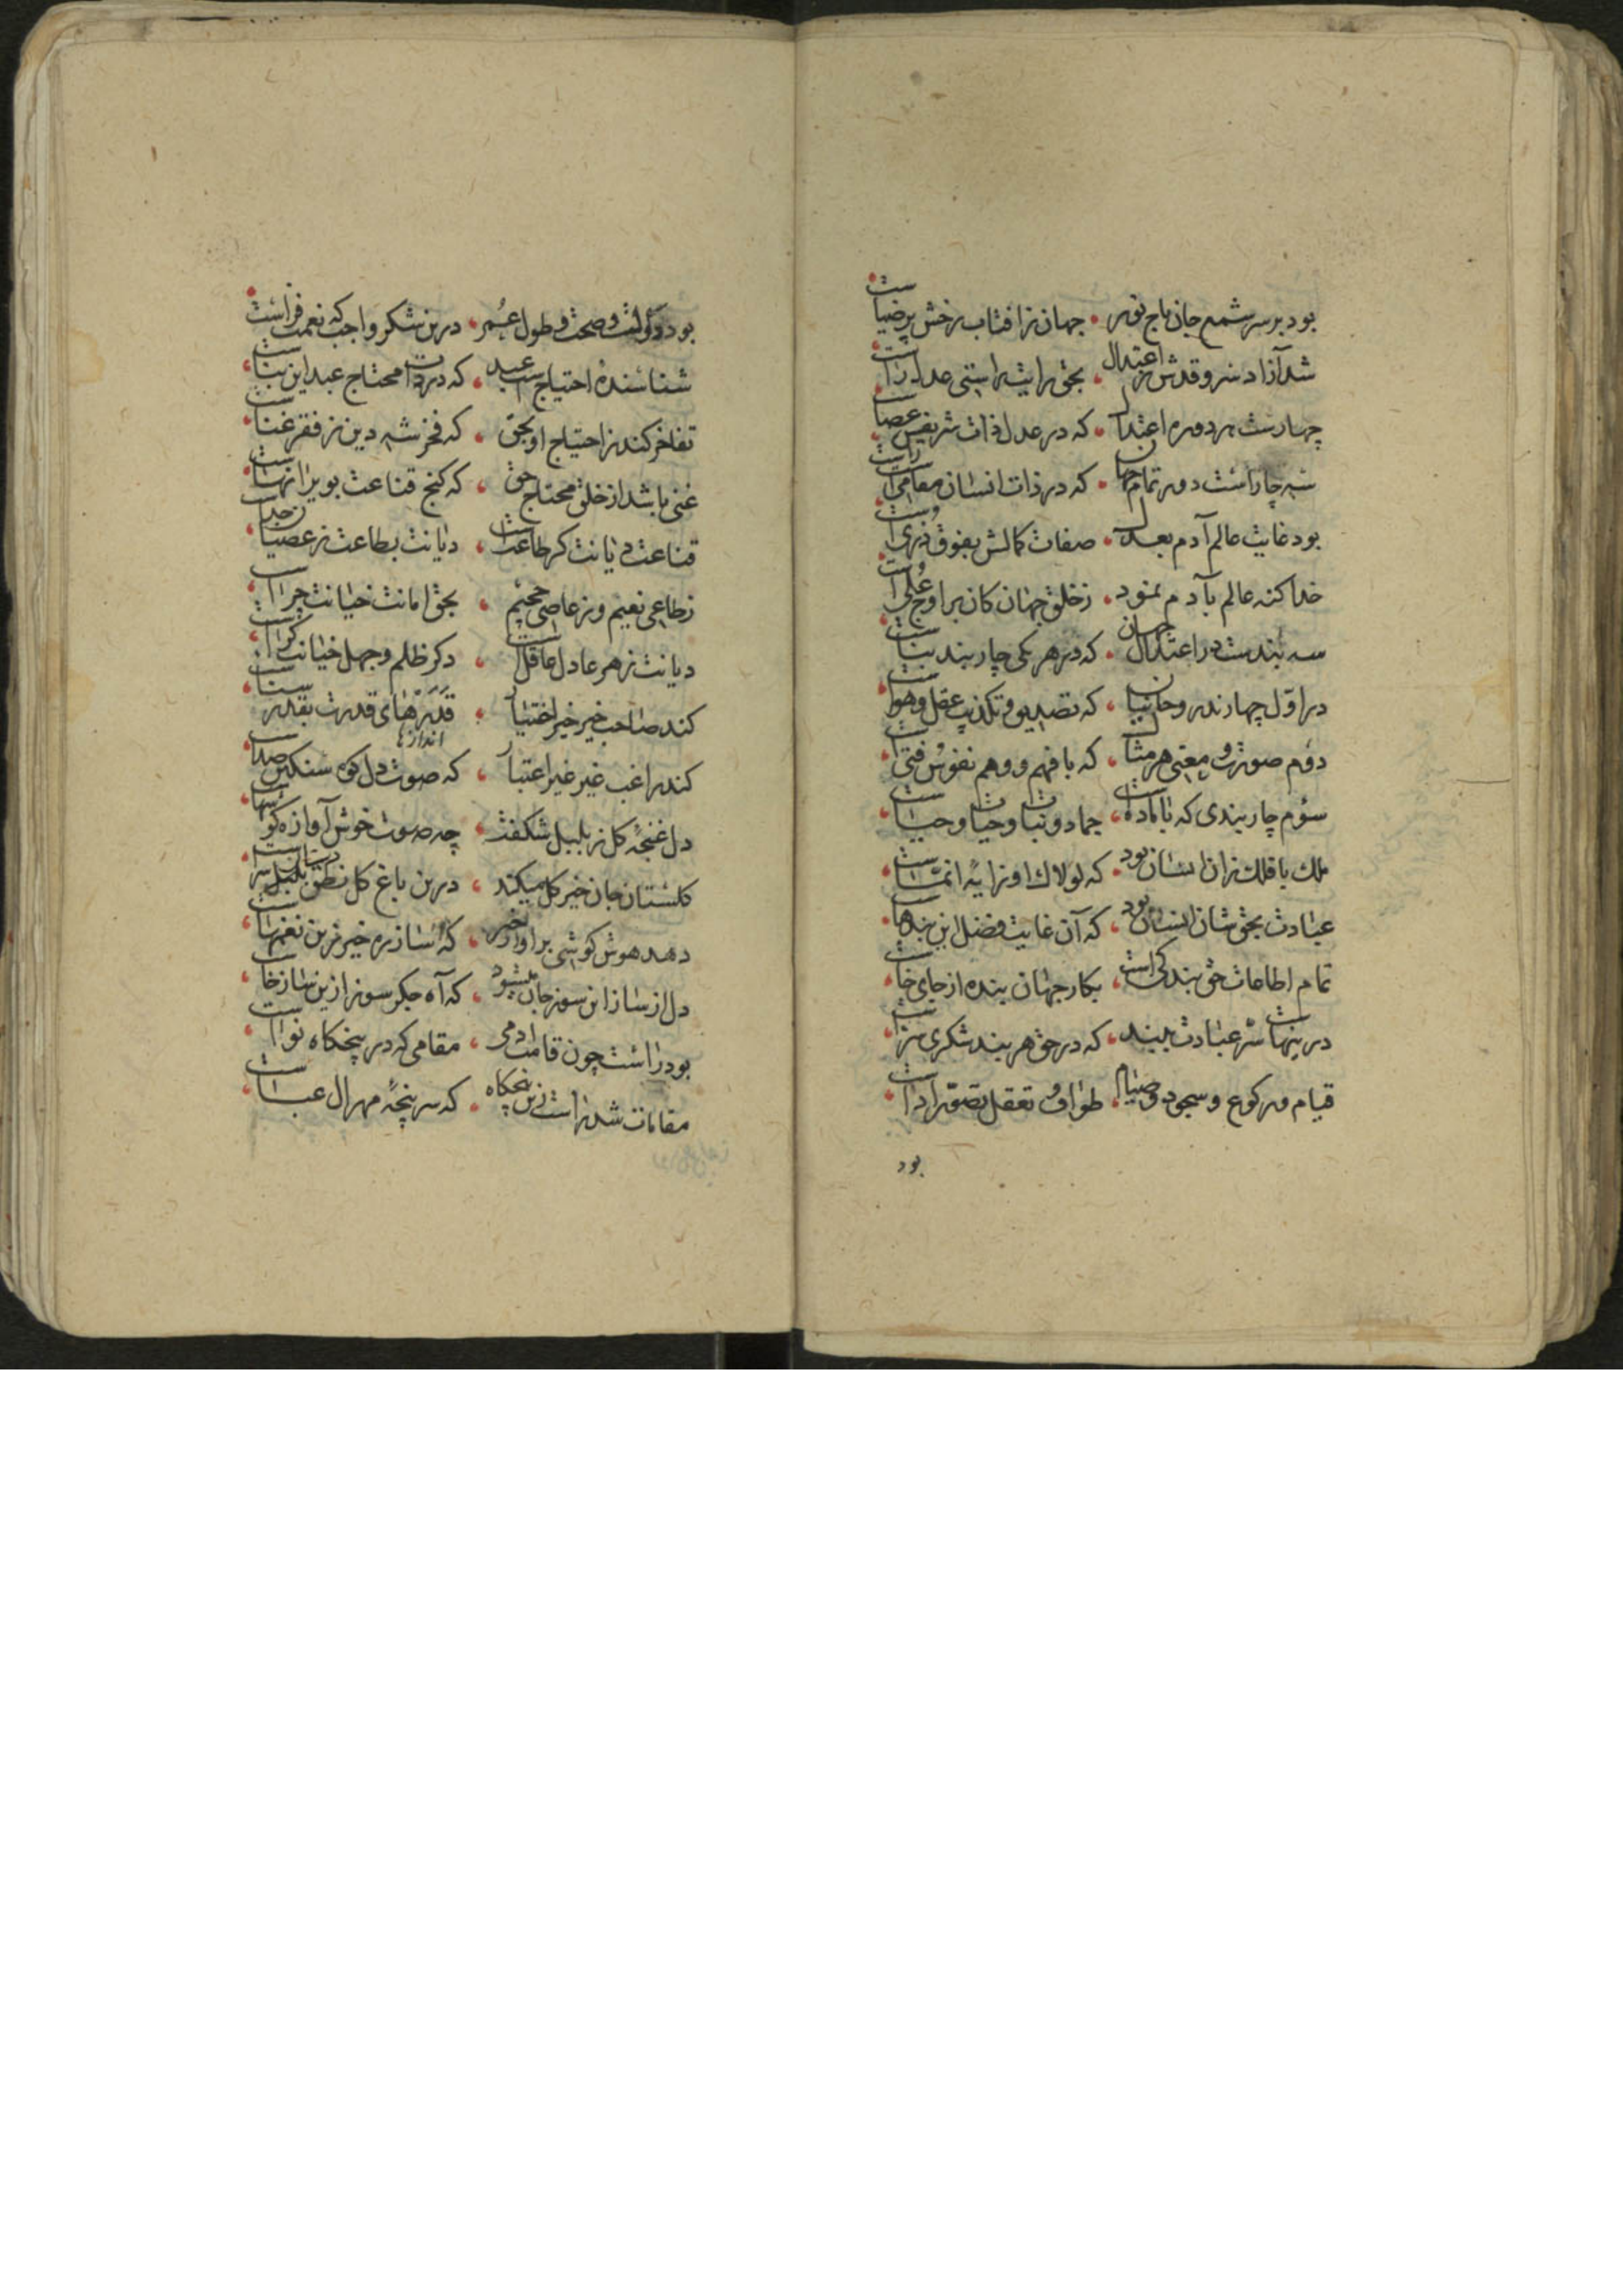 بود بر سر شمع جان تاج نور • جهان ز آفتاب رخش پرضیاست
شد آزاد سرو قدش ز اعتدال • بحق راستی عدل اراست
چهارست بر دوره اعتدال • که در عدل ذات شریفش عصاست
شه چار است دور تمام جهان • که در ذات انسان مقامی است
بود غایت عالم آدم بعدل • صفات کمالش بفوق ذریست
خدا کنه عالم بآدم نمود • ز خلق جهان کان بر اوج علی است
سه بندست در اعتدال جهان • که در هر یکی چار بند بناست
در اول چهارند روحانیان • که تصدیق و تکذیب عقل و هواست
دوم صورت و معنی هر مثال • که با فهم و وهم نفوس فتی است
سوم چار بندی که با ماده است • جماد و نبات و حیات و حیاست
ملک با فلک زان انسان بود • که لولاك او را یه انماست
عبادت بحق شان انسان بود • که آن غایت فضل این بندهاست
تمام اطاعات حق بندگی است • بکار جهان بنده از جای خاست
درینهاست سر عبادت ببند • که در حق هر بند شکری سزاست
قیام و رکوع و سجود و صیام • طواف و تعقل تصور اداست
بود
بود دولت و صحت و طول عمر • درین شکر واجب که نعمت فزاست
شناسنده احتیاج است عبد • که در ذات محتاج عبد این بناست
تفاخر کند ز احتیاج او بحق • که فخر شه دین ز فقر غناست
غنی باشد از خلق محتاج حق • که کنج قناعت بویرانهاست
قناعت دیانت کر طاعت است • دیانت بطاعت ز عصیان جداست
ز طاعی نعیم و ز عاصی جحیم • بحق امانت خیانت چراست
دیانت ز هر عادل عاقل است • دکر ظلم و جهل خیانت کراست
کند صاحب خیر خیر اختیار • قدرهای قدرت بقدر سناست
اندازها
کند راغب غیر غیر اعتبار • که صوت دل کوه سنکین صداست
دل غنچه کل ز بلبل شکفت • چه صوت خوش آوازه کوشهاست
کلستان جان خیر کل میکند • درین باغ کل نطق بلبل سراست
دهد هوش کوشی بر آواز خیر • که ساز ره خیر زین نغمهاست
دل از ساز این سوز جان میشود • که آه جکر سوز ازین ساز خاست
بود راست چون قامت آدمی • مقامی که در پنجکاه نواست
مقامات شد راست زین پنجکاه • که سر پنجه مهر ال عباست